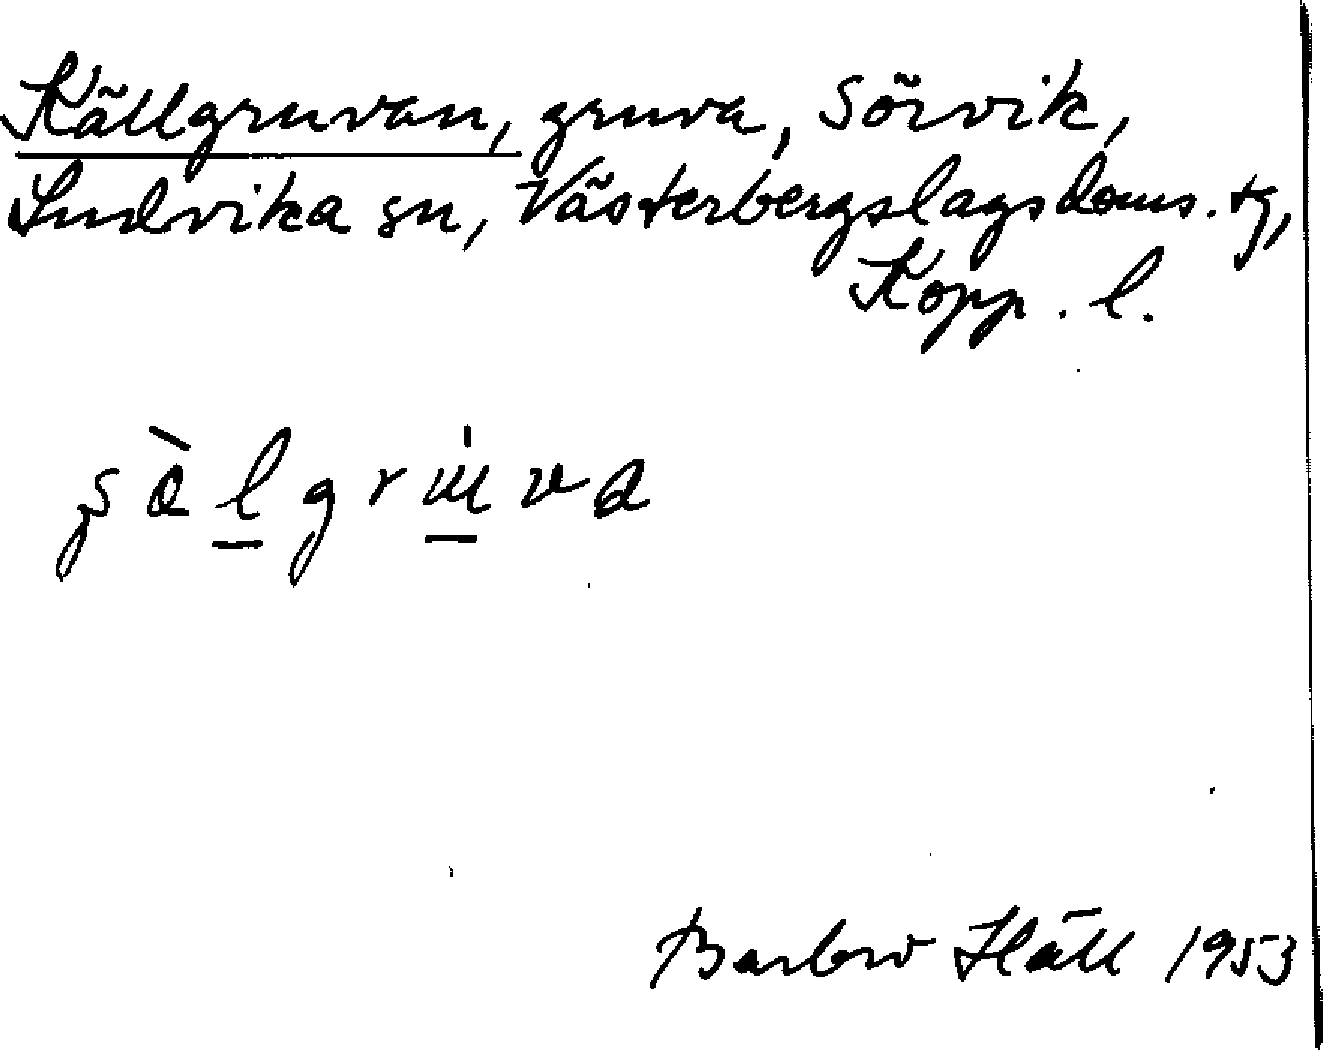 Källgruvan, gruva, Sörvik,
Ludvika sn, Västerbergslags doms. tg,
Kopp. l.
Barbro Häll 1953